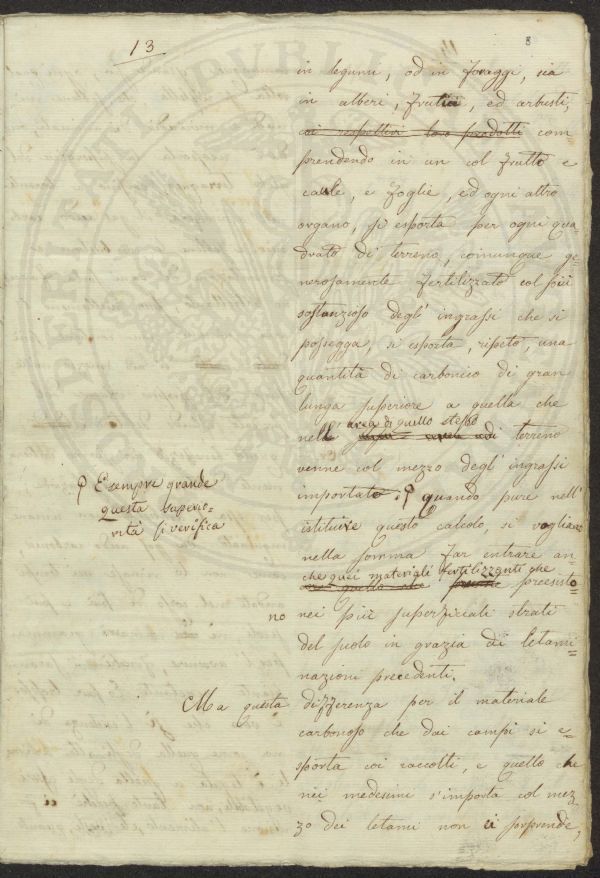 13
8
in legumi, od in foraggi, sia
in alberi, frutici, ed arbusti,
coi respettivi loro prodotti com
prendendo in un col frutto e
caule, e foglie, ed ogni altro
organo, si esporta per ogni qua=
drato di terreno, comunque ge=
nerosamente fertilizzato col più
sostanzioso degl' ingrassi che si
possegga, si esporta, ripeto, una
quantità di carbonio di gran
lunga superiore a quella che
nell' area di quello stesso terreno
venne col mezzo degl' ingrassi
importato. quando pure nell'
E sempre grande
questa superio=
rità si verifica
istituire questo calcolo, si vogliano
nella somma far entrare an=
che quei materiali fertilizzanti che
preesisto=
no nei più superficiali strati
del suolo in grazia di letami=
nazioni precedenti.
Ma questa differenza per il materiale
carbonoso che dai campi si e=
sporta coi raccolti, e quello che
nei medesimi s'importa col mez=
zo dei letami non ci sorprende,